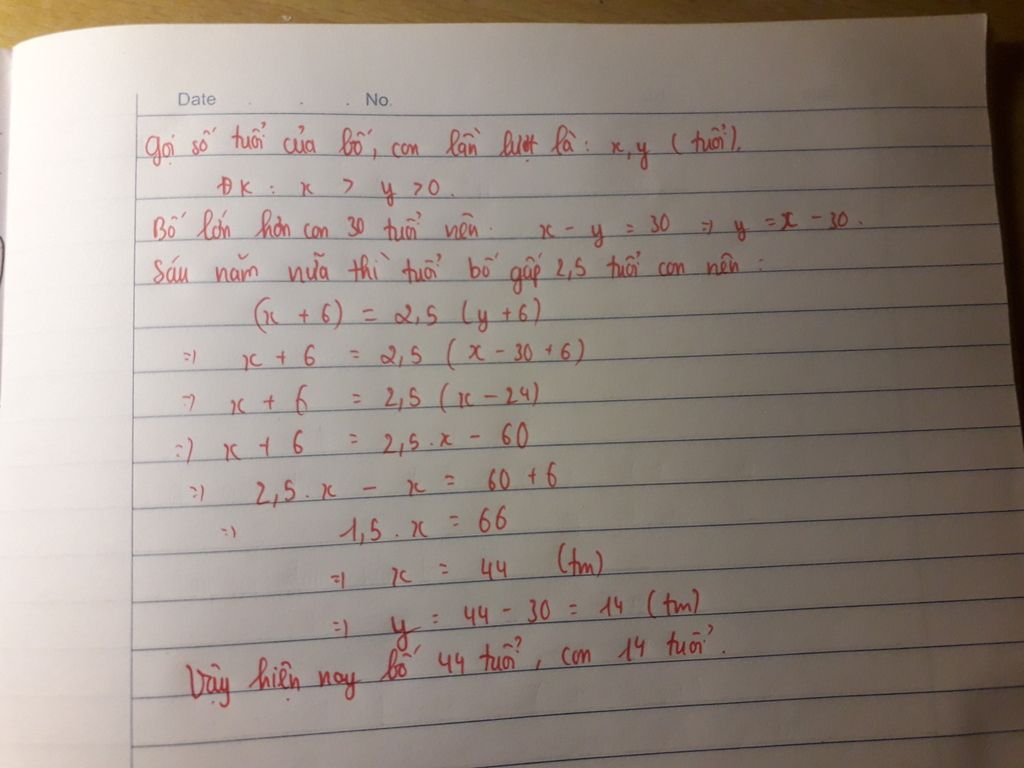 Date . . . No.
Gọi số tuổi của bố, con lần lượt là : x, y ( tuổi ).
ĐK : x > y > 0.
Bố lớn hơn con 30 tuổi nên. x - y = 30 => y = x - 30.
Sáu năm nữa thì tuổi bố gấp 2,5 tuổi con nên :
(x + 6) = 2,5 (y + 6)
=> x + 6 = 2,5 ( x - 30 + 6)
=> x + 6 = 2,5 (x - 24)
=> x + 6 = 2,5.x - 60
=> 2,5.x - x = 60 + 6
=> 1,5.x = 66
=> x = 44 (tm)
=> y = 44 - 30 = 14 (tm)
Vậy hiện nay bố 44 tuổi, con 14 tuổi.